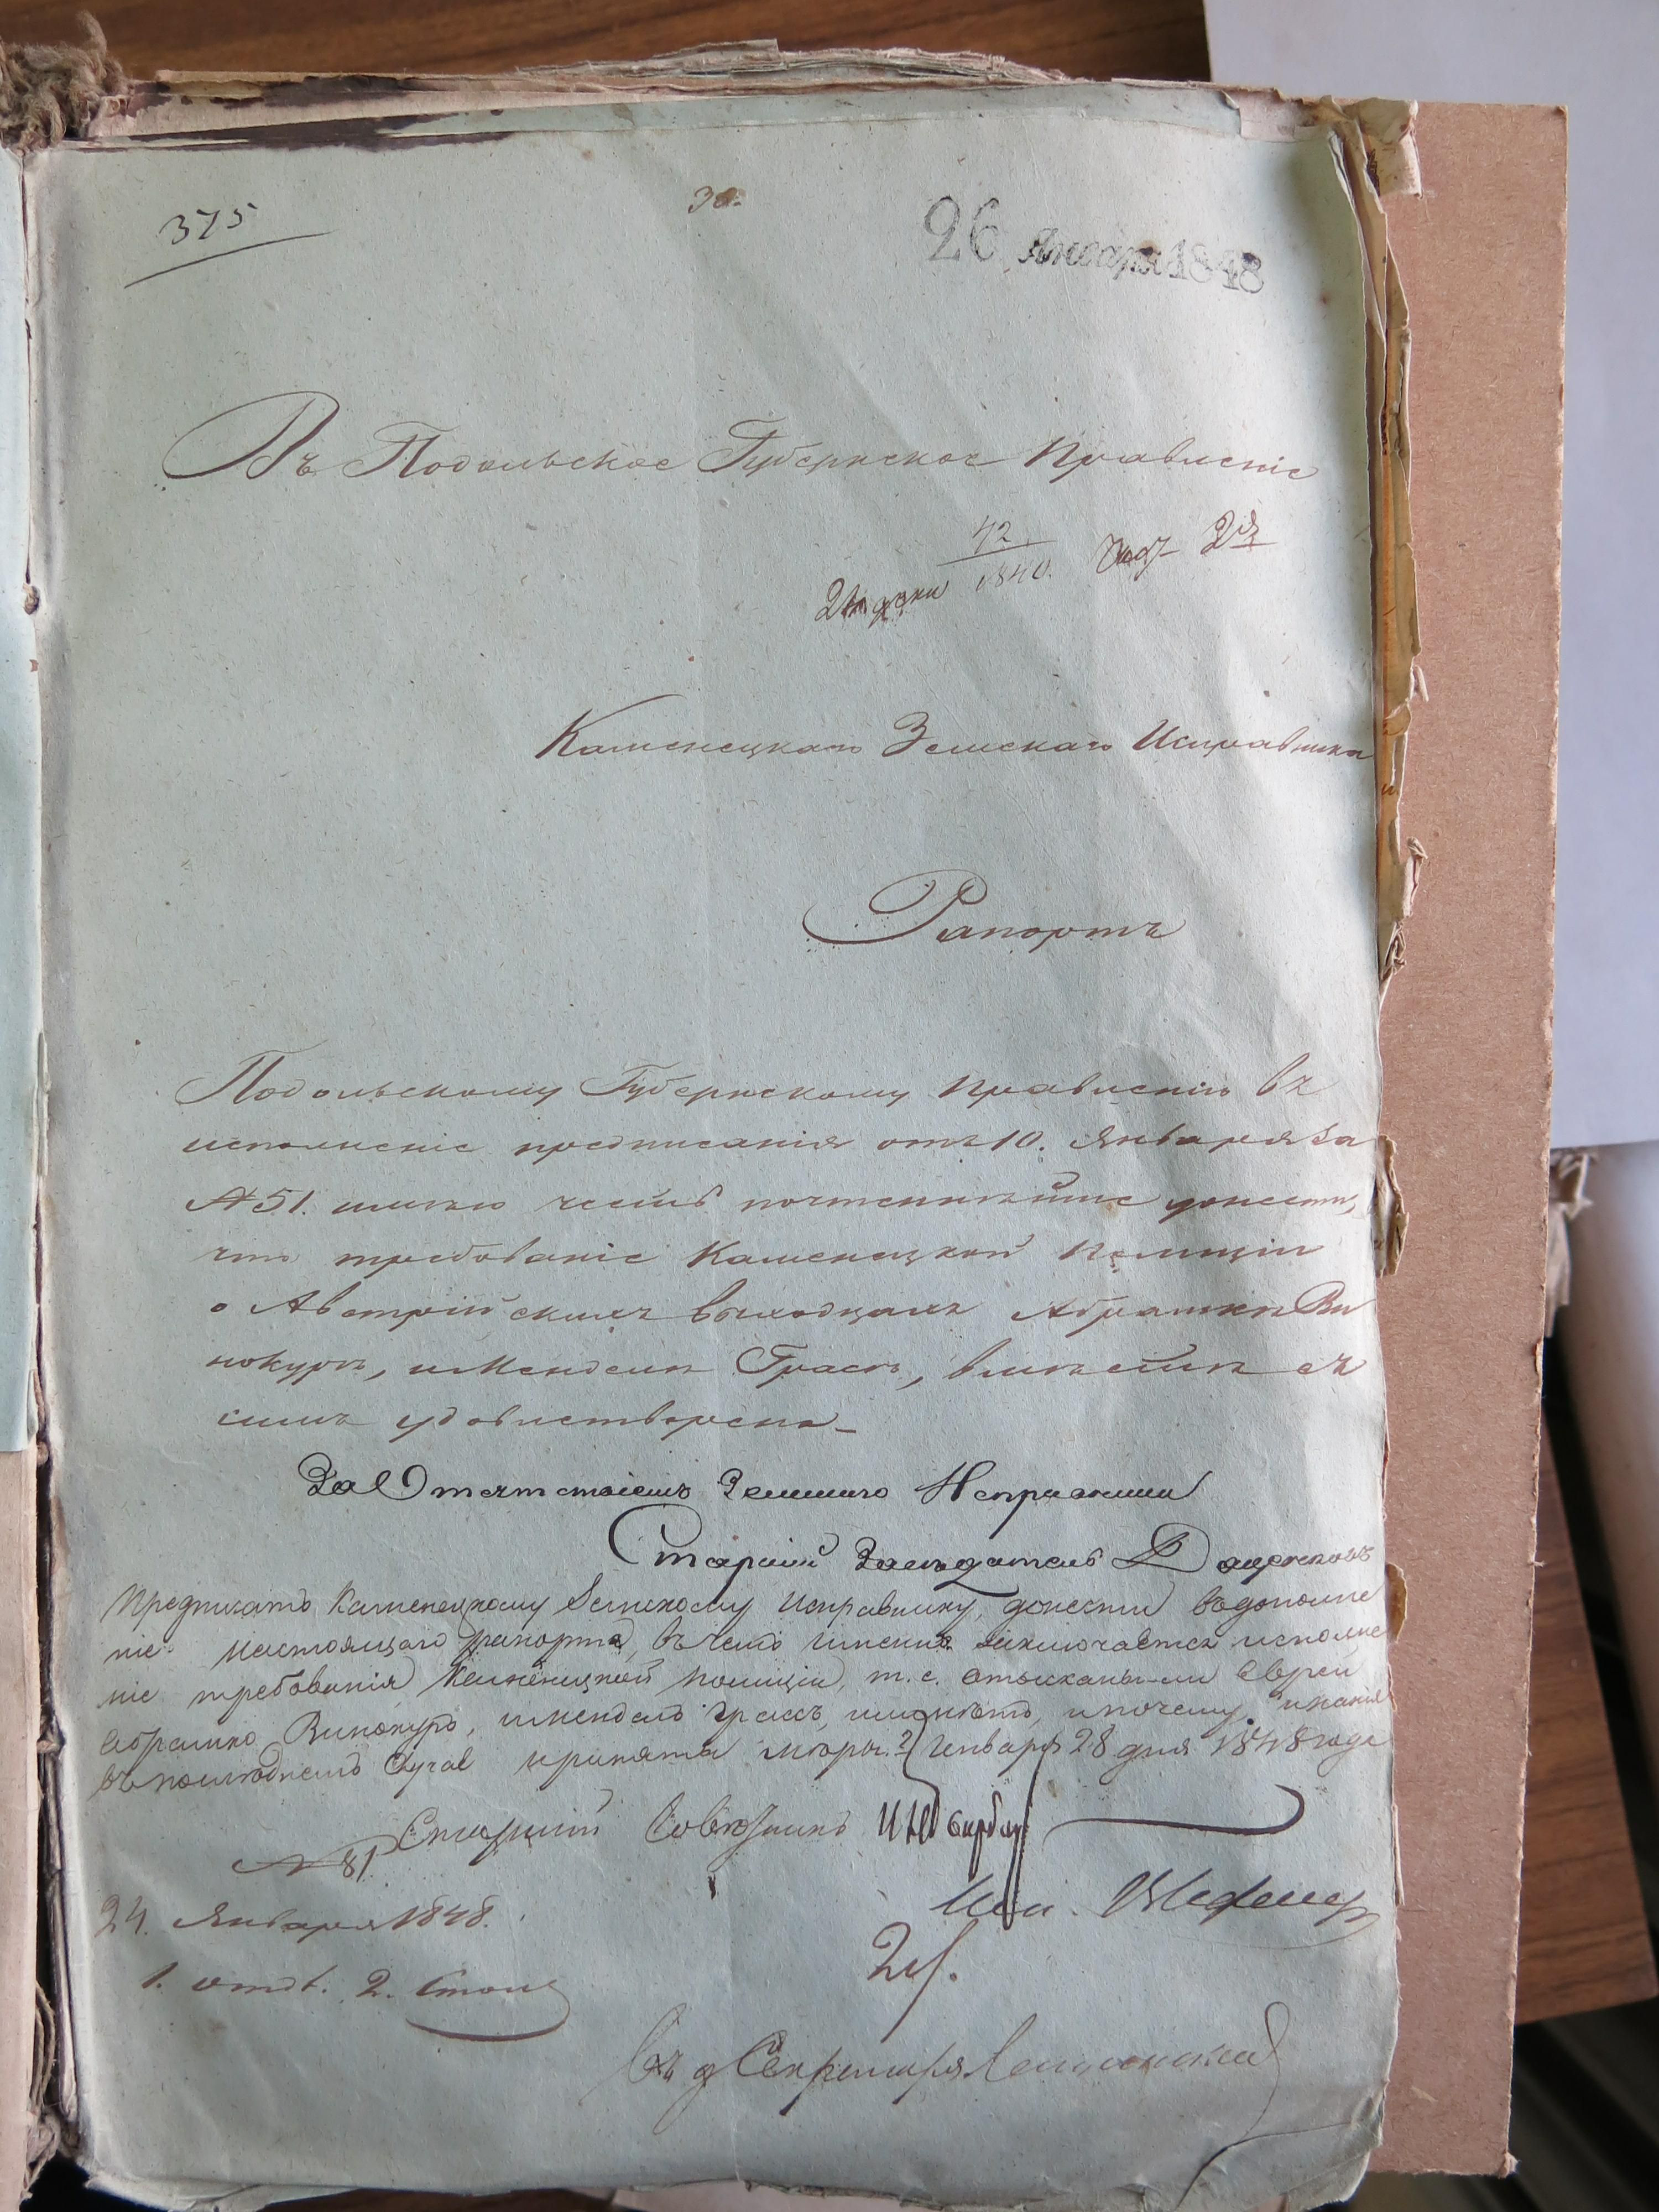 375
30.
26 Января 1848
Въ Подольское Губернское Правленіе
42
1840.
Каменецкаго Земскаго Исправника
Рапортъ
Подольскому Губернскому Правленію въ
исполненіе предписанія отъ 10. Января за
№ 51. имѣю честь почтеннѣйше донести,
что требованіе Каменецкой Полиціи
о Австрійскихъ выходцахъ Абрашкѣ Ви
нокурѣ, и Менделѣ Грасѣ, вмѣстѣ съ
симъ удовлетворено
За Отсутствіемъ Земскаго Исправника
Старшій Засѣдатель
Предписать Каменецкому Земскому Исправнику, донести въ дополне
ніе настоящаго рапорта, въ чемъ именно заключается исполне
ніе требованія Каменецкой полиціи, т. е. отысканы-ли Евреи
Абрашко Винокуръ, и Мендель Грасъ, или нѣтъ, и почему, и какія
въ послѣднемъ случаѣ приняты мѣры? Генваря 28 дня 1848 года
Старшій Совѣтникъ
№ 81
24. Января 1848.
1. отд. 2. Стола
Секретаря